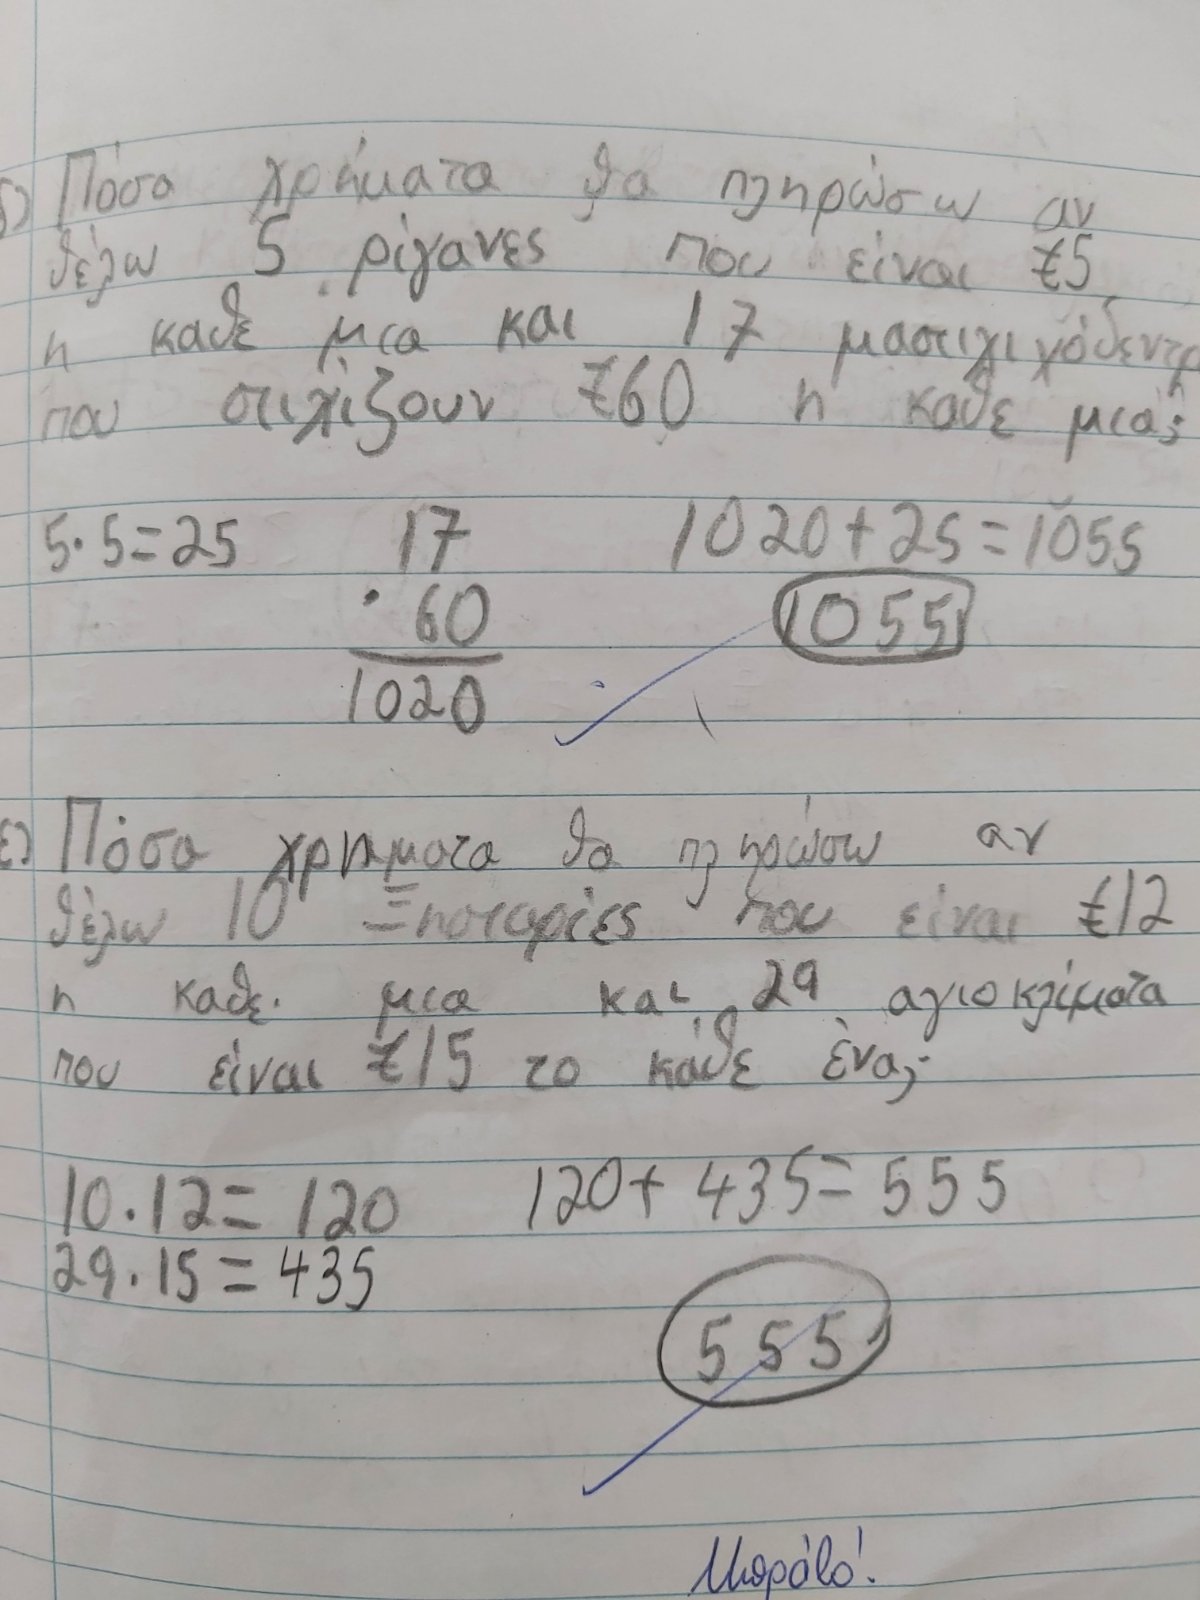 δ) Πόσα χρήματα θα πληρώσω αν
θέλω 5 ρίγανες που είναι €5
η καθε μια και 17 μαστιχιχόδεντρ
που στιχίζουν €60 η καθε μια;
5·5=25
17
· 60
1020
1020+25=1055
1055
ε) Πόσα χρηματα θα πληρώσω αν
θέλω 10 Ξηστεριές που είναι €12
η καθε μια και 29 αγιοκλίματα
που είναι €15 το κάθε ένα;
10·12= 120
29·15=435
120+ 435= 555
555
Μπράβο!